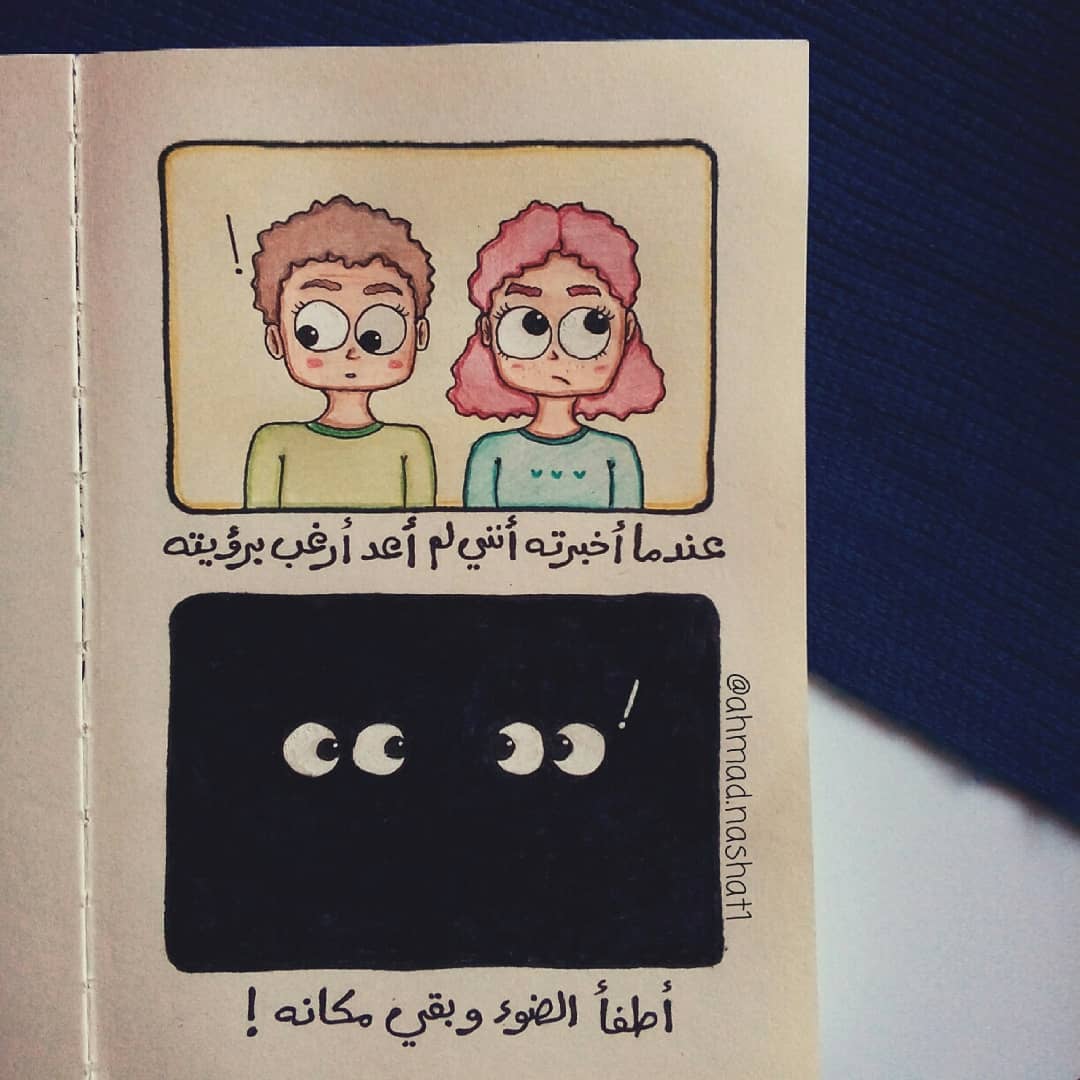 عندما أخبرته أنني لم أعد أرغب برؤيته
@ahmad.nashat1
أطفأ الضوء وبقي مكانه !